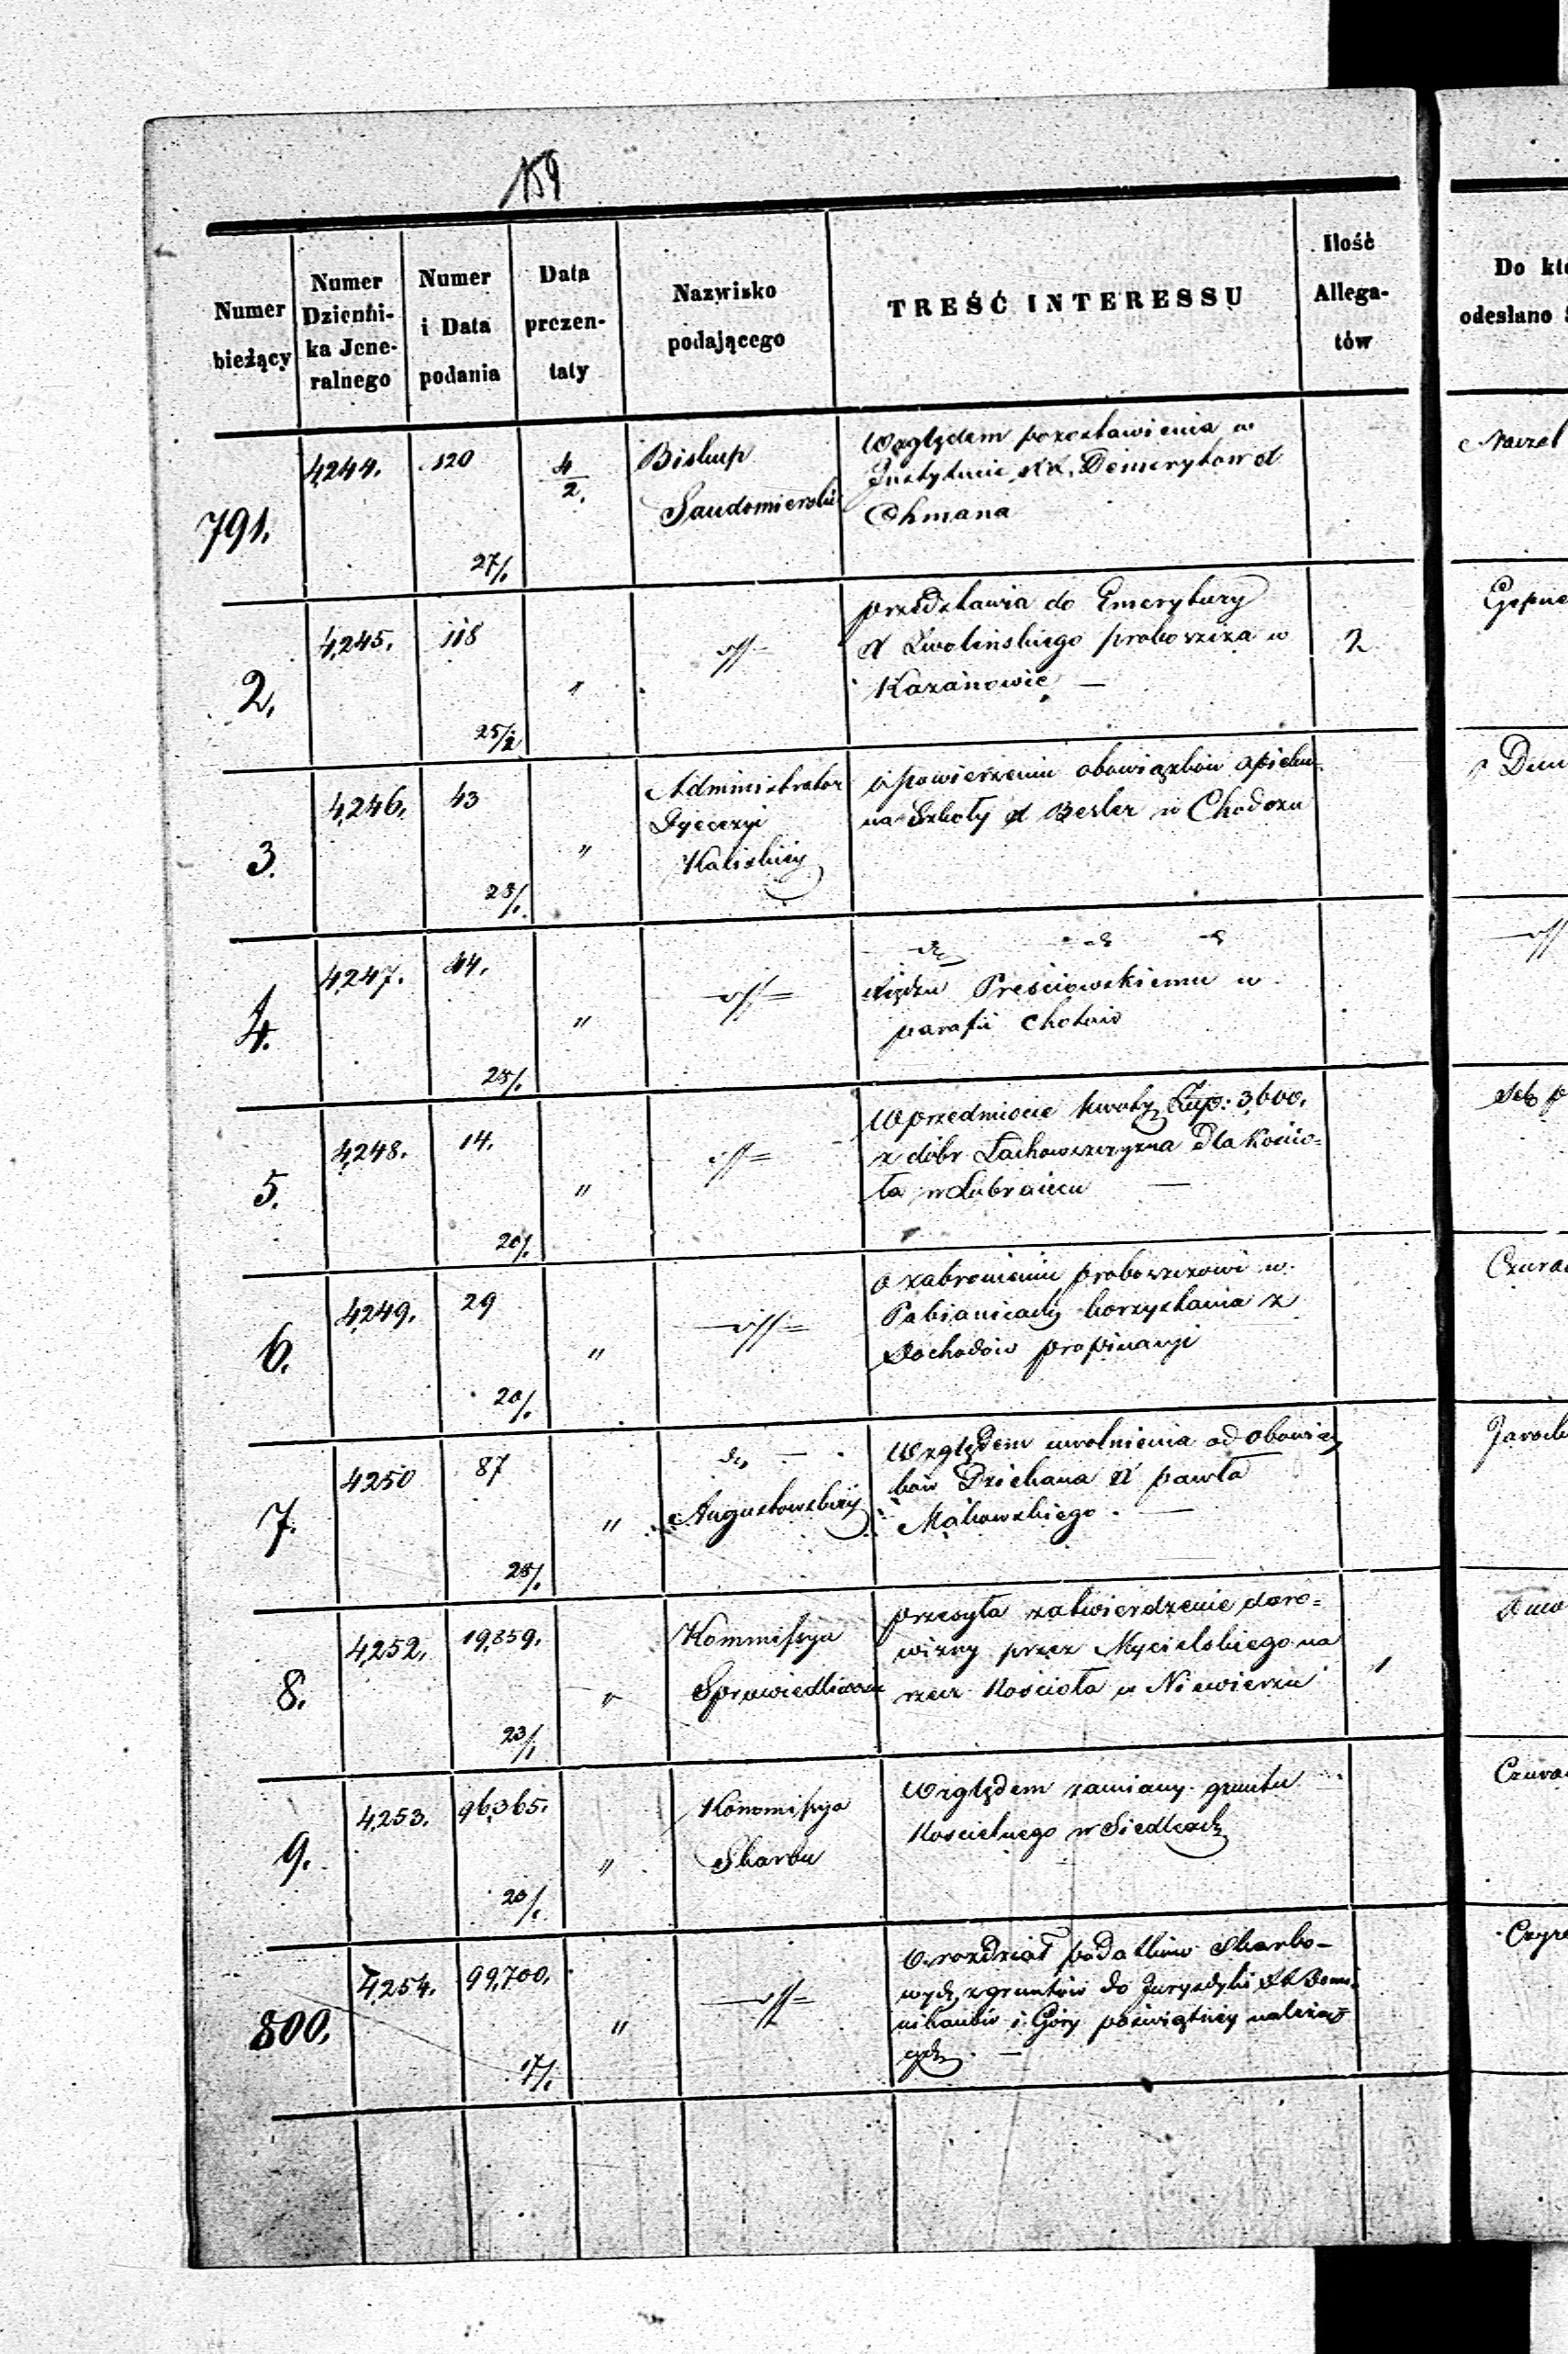 159
Numer bieżący
Numer Dzienni-
ka Jene-
ralnego
Numer
i Data
podania
Data
prezen-
taty
Nazwisko
podającego
TREŚĆ INTERESSU
Ilość
Allega-
tów
Do któ
odesłano
791.
4,244.
120
27/1
4/2.
Biskup
Sandomierski
Względem pozostawienia w
Instytucie XX. Demerytów X
Ohmana
2.
4,245.
118
25/2
"
przedstawia do Emerytury
X Zwolińskiego proboszcza w
Kazanowie —
2
3.
4,246.
43
23/1.
"
Administrator
Dyecezyi
Kaliskiéj
o powierzeniu obowiązków opieku
na Szkoły X Besler w Chodczu
4.
4,247.
44.
25/1.
"
Xiędzu Preściowskiemu w
parafii Chotów
5.
4,248.
14.
20/1.
"
W przedmiocie kwoty Złp: 3,600.
z dóbr Lachowszczyzna Dla Kościo=
ła w Lubrańcu —
6.
4,249.
29
20/1.
"
o zabronieniu proboszczowi w
Pabianicach korzystania z
dochodów propinacyi
7.
4250
87
25/1.
"
do —
Augustowskiéj
Względem uwolnienia od obowiąz
ków Dziekana X pawła
Makowskiego. —
Jarock
8.
4,252.
19,859.
23/1
"
Kommissya
Sprawiedliwości
przesyła zatwierdzenie daro=
wizny przez Mycielskiego na
rzecz Kościoła w Niewierzu
1
9.
4,253.
96,365.
20/1.
"
Kommissya
Skarbu
Względem zamiany gruntu
Kościelnego w Siedlcach
800.
4,254.
99,700.
17/1.
"
O rozdział podatków Skarbo-
wych z gruntów do Juryzdyki XX Domi
nikanów i Góry poświątnéj należą
cych. —